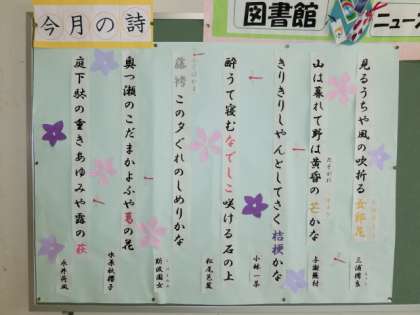 今月の詩
図書館
ニュース
見るうちや風の吹折る女郎花
三浦樗良
山は暮れて野は黄昏の芒かな
たそがれ
すすき
与謝蕪村
きりきりしゃんとしてさく桔梗かな
小林一茶
酔うて寝むなでしこ咲ける石の上
松尾芭蕉
藤袴この夕ぐれのしめりかな
ふじばかま
斯波園女
奥つ瀬のこだまかよふや葛の花
水原秋櫻子
庭下駄の重きあゆみや露の萩
永井荷風